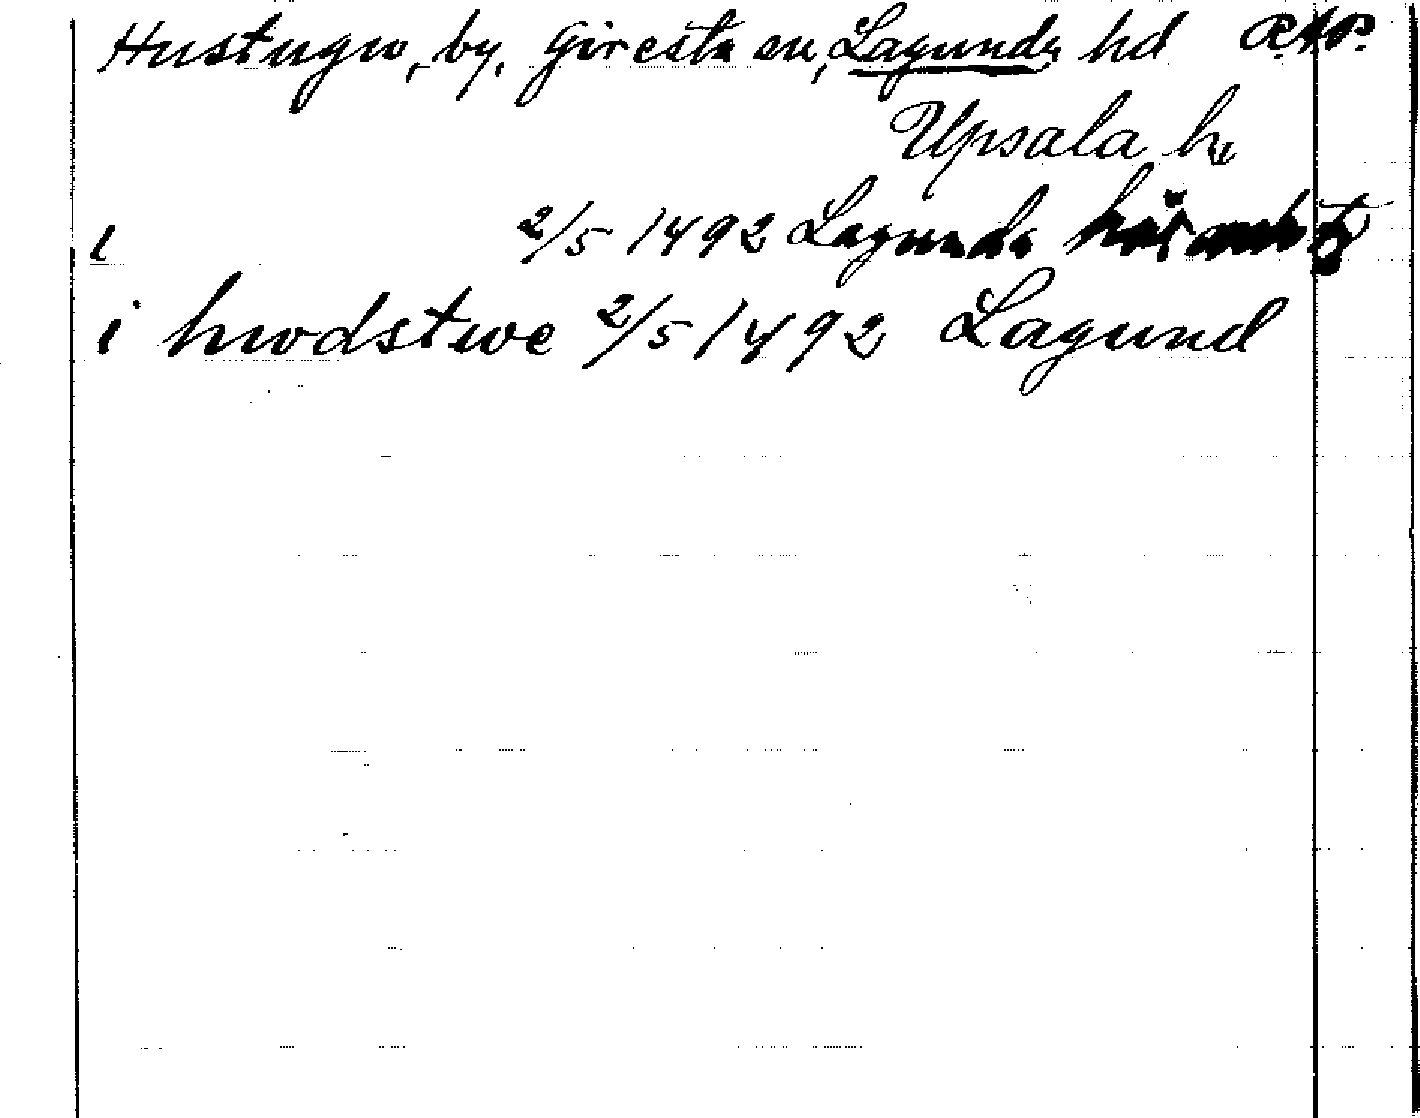 Hustugw, by, Giresta sn, Lagunda hd RAP.
Upsala l.
i 2/5 1492 Lagunda
i hwdstwe 2/5 1492 Lagund